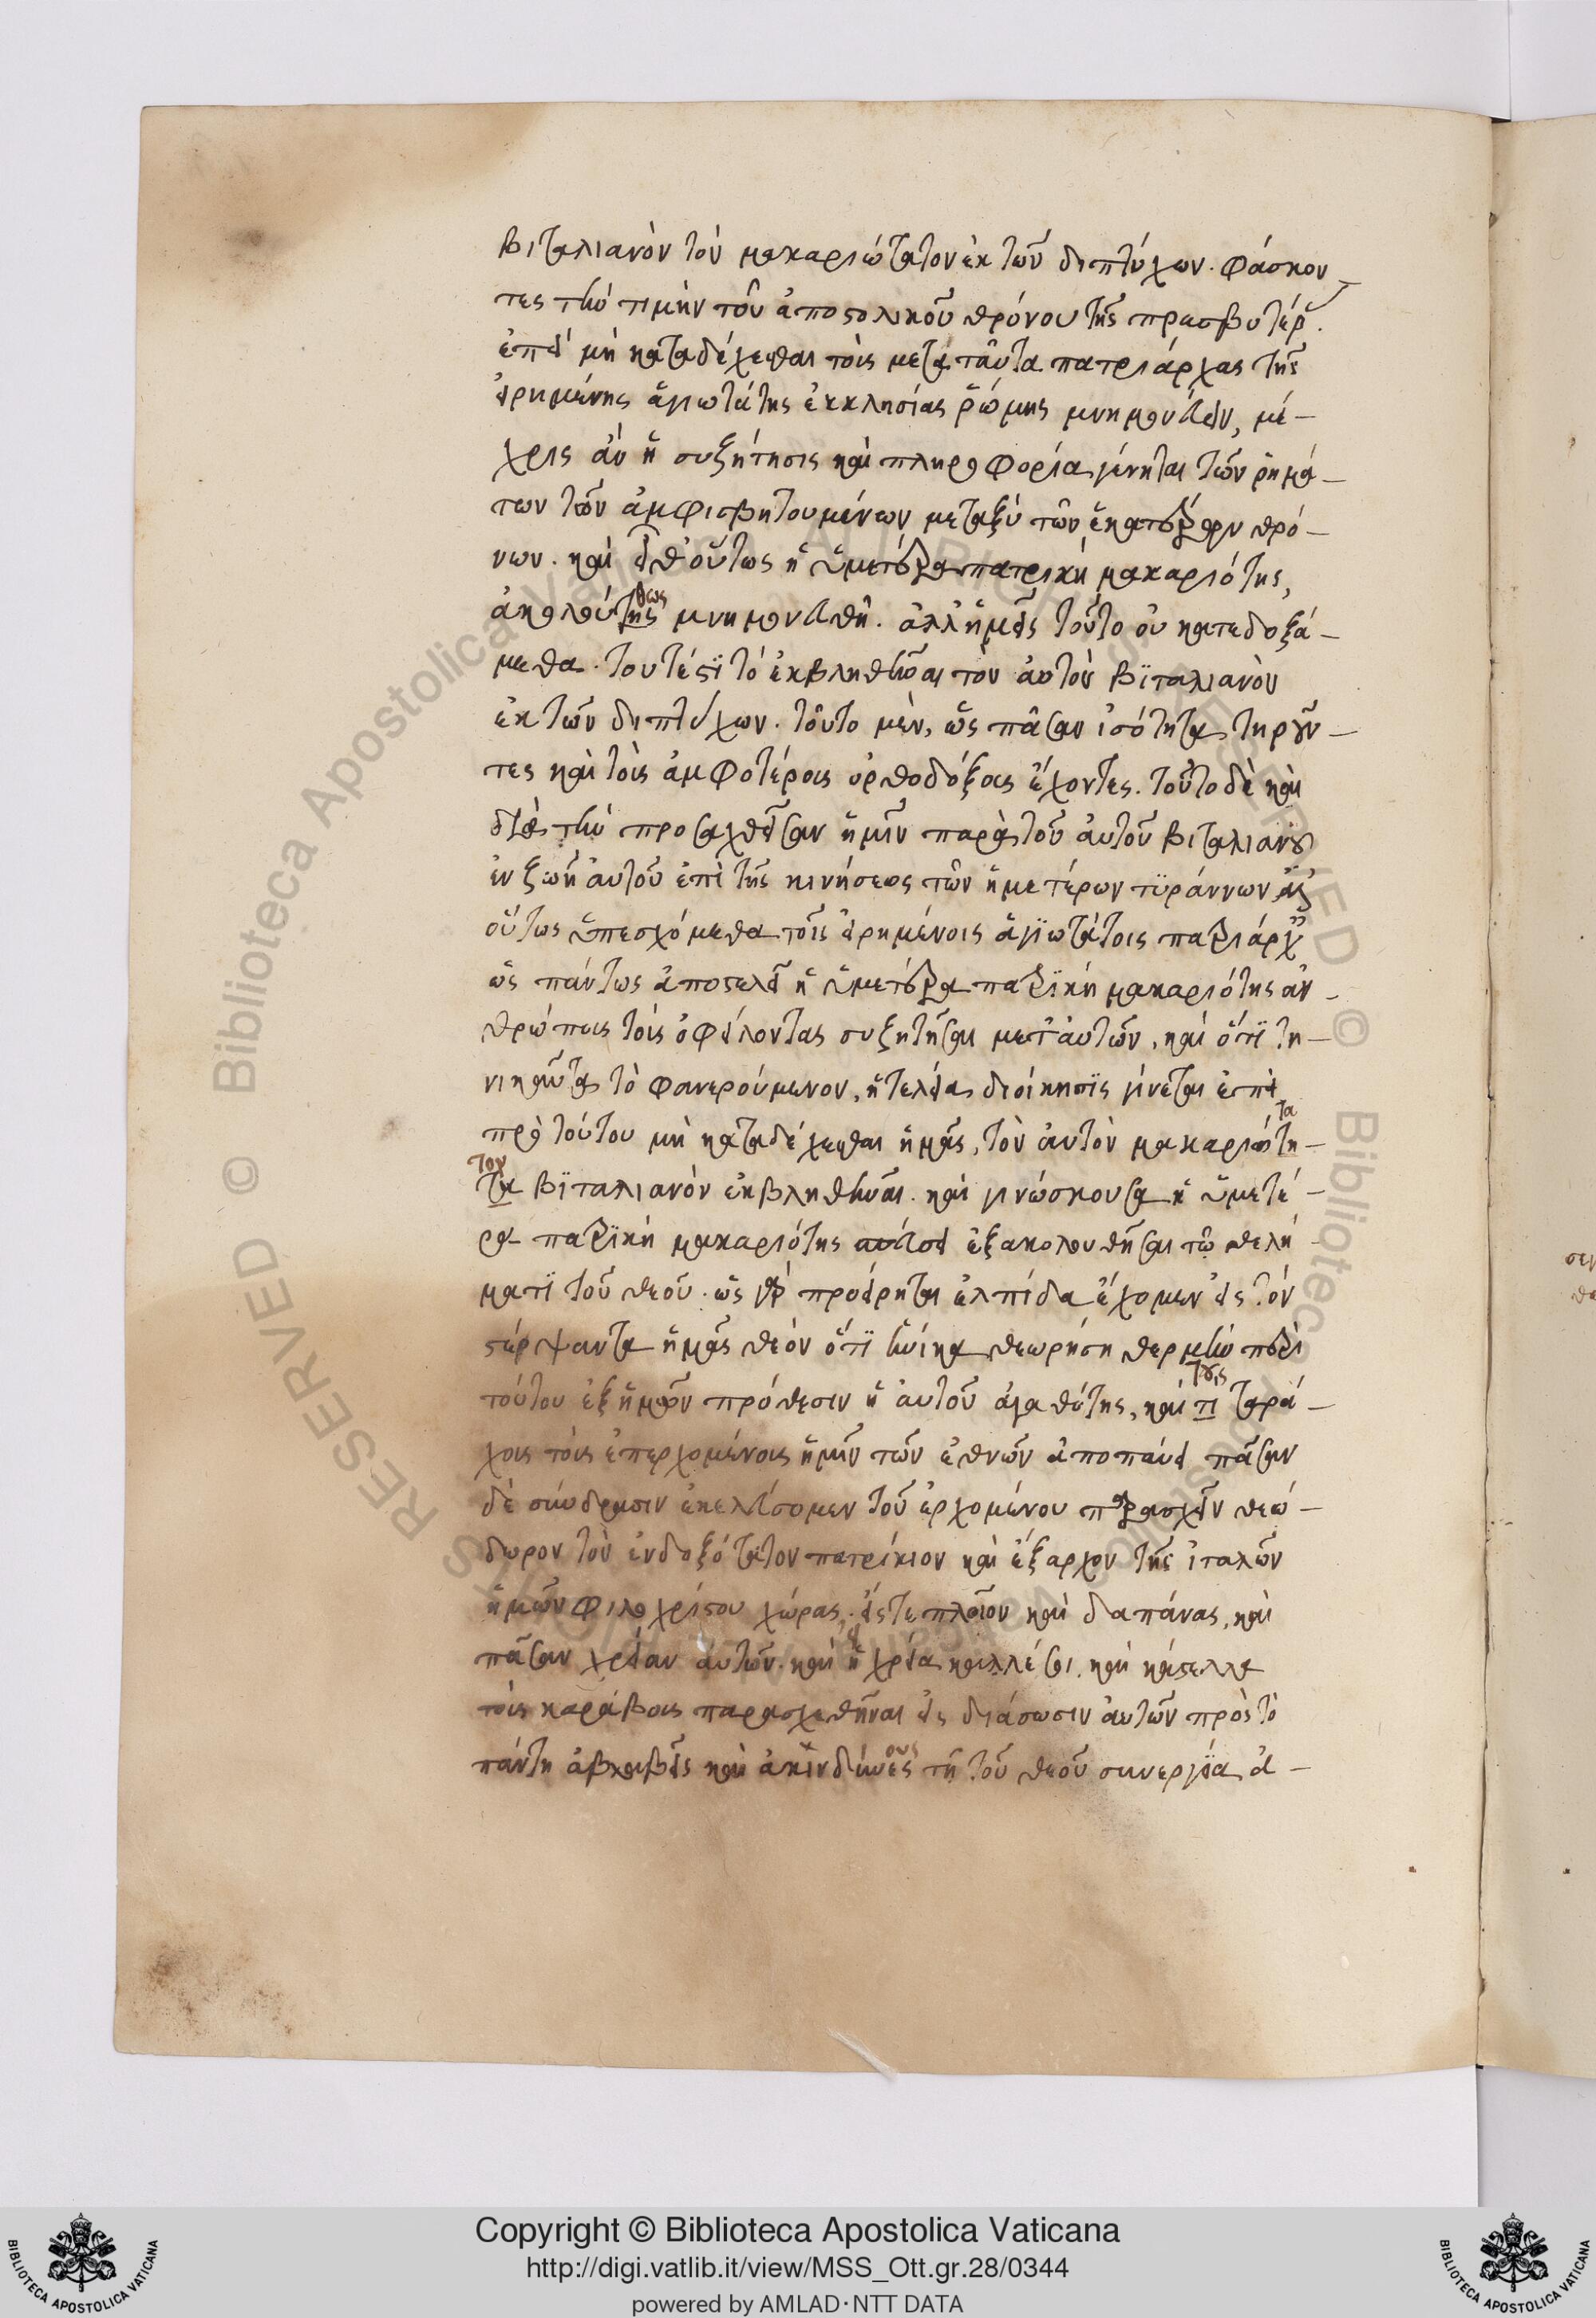 βιταλιανὸν τὸν μακαριώτατον ἐκ τῶν διπτύχων. φάσκον
τες τὴν τιμὴν τοῦ ἀποστολικοῦ θρόνου τῆς πρεσβυτέρ.
ἐπεὶ μὴ καταδέχεσθαι τοὺς μετὰ ταῦτα πατριάρχας τῆς
εἰρημένης ἁγιωτάτης ἐκκλησίας ῥώμης μνημονεύειν, μέ-
χρις ἂν ἡ συζήτησις καὶ πληροφορία γένηται τῶν ῥημά-
των τῶν ἀμφισβητουμένων μεταξὺ τῶν ἑκατέρων θρό-
νων. καὶ εἶθ' οὕτως ἡ ὑμετέρα πατρικὴ μακαριότης,
ἀκολούτης θως μνημονευθῆ. ἀλλ' ἡμεῖς τοῦτο οὐ κατεδεξά-
μεθα. τουτέστι τὸ ἐκβληθῆναι τὸν αὐτὸν βϊταλιανὸν
ἐκ τῶν διπτύχων. τοῦτο μὲν, ὡς πᾶσαν ἰσότητα τηροῦν-
τες καὶ τοὺς ἀμφοτέρους ὀρθοδόξους ἔχοντες. τοῦτο δὲ καὶ
διὰ τὴν προσαχθεῖσαν ἡμῖν παρὰ τοῦ αὐτοῦ βιταλιανοῦ
ἐν ζωῆ αὐτοῦ ἐπὶ τῆς κινήσεως τῶν ἡμετέρων τϋράννων
οὕτως ὑπεσχόμεθα τοῖς εἰρημένοις ἁγϊωτάτοις πατριάρχ
ὡς πάντως ἀποστελεῖ ἡ ὑμετέρα πατρϊκὴ μακαριότης ἀν-
θρώπους τοὺς ὀφείλοντας συζητῆσαι μετ' αὐτῶν, καὶ ὅτϊ τη-
νικαῦτα τὸ φανερούμενον, ἡ τελεία διοίκησϊς γίνεται ἐπεὶ
πρὸ τούτου μὴ καταδέχεσθαι ἡμᾶς, τὸν αὐτὸν μακαριώτη- τα
τα τον βϊταλιανὸν ἐκβληθῆναι. καὶ γινώσκουσα ἡ ὑμετέ-
ρα πατρϊκὴ μακαριότης ἐξακολουθῆσαι τῶ θελή
ματϊ τοῦ θεοῦ. ὡς γὰρ προείρηται ἐλπίδα ἔχομεν εἰς τὸν
στέρψαντα ἡμᾶς θεὸν ὅτϊ ἡνίκα θεωρήση θερμὴν περὶ
τούτου ἐξ ἡμῶν πρόθεσιν ἡ αὐτοῦ ἀγαθότης, καὶ τι τους ταρά-
χους τοὺς ἐπερχομένους ἡμῖν τῶν ἐθνῶν ἀποπαύει πᾶσαν
δὲ σύνδρασιν ἐκελεύσομεν τοῦ ἐρχομένου παρασχεῖν θεό-
δωρον τὸν ἐνδοξότατον πατρίκιον καὶ ἔξαρχον τῆς ἰταλῶν
ἡμῶν φιλοχρίστου χώρας, εἴς τε πλοῖον καὶ δαπάνας, καὶ
πᾶσαν χρείαν αὐτῶν. καὶ εἰ ἡ χρεία καλλέσαι. καὶ κάστελλα
τοὺς καράβους παρασχεθῆναι εἰς διάσωσιν αὐτῶν πρὸς τὸ
πάντη ἀβλαβεῖς καὶ ἀκινδύνες ους τῆ τοῦ θεοῦ συνεργϊεία ἀ-
Copyright © Biblioteca Apostolica Vaticana
http://digi.vatlib.it/view/MSS_Ott.gr.28/0344
powered by AMLAD·NTT DATA
BIBLIOTECA APOSTOLICA VATICANA
BIBLIOTECA APOSTOLICA VATICANA